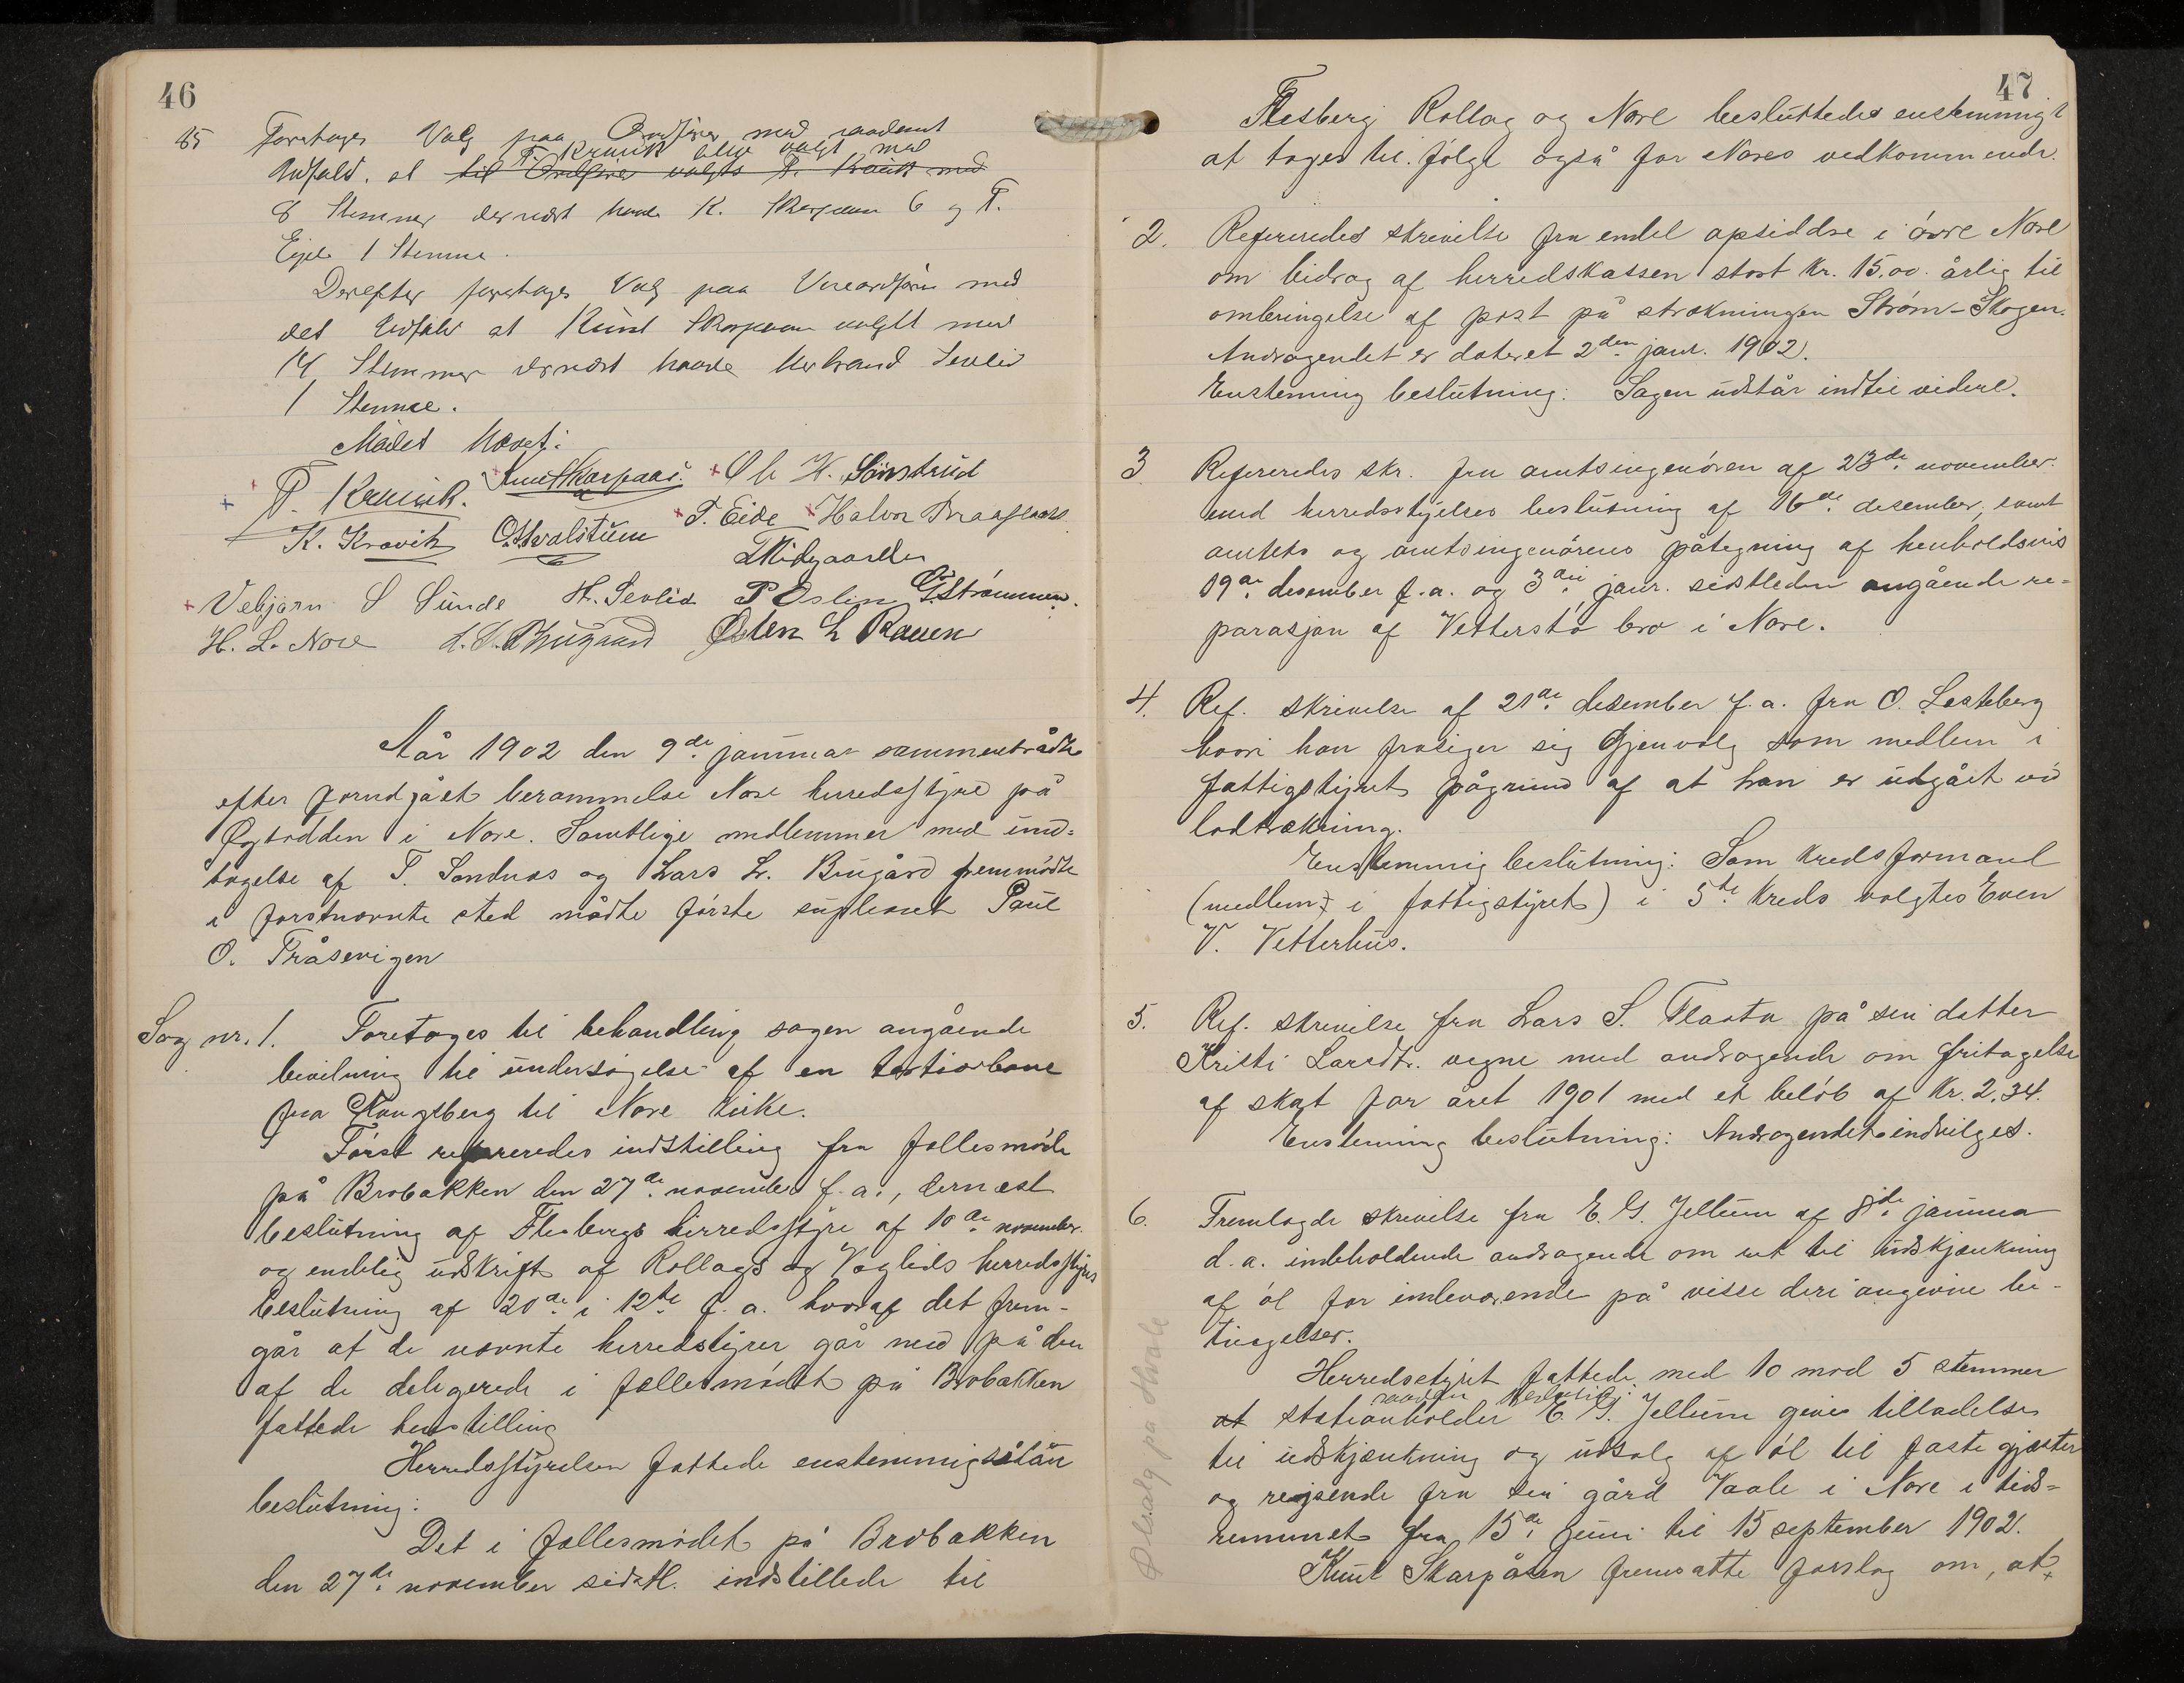 46
85 Foretoges Valg paa Ordfører med saadant
Udfald, at T. Kravik blev valgt med
til Ordfører valgts T. Kravik med
8 Stemmer dernæst havde K. Skarpaas 6 og T.
Eide 1 Stemme.
Derefter foretoges Valg paa Viceordfører med
det Udfald at Knud Skarpaas valgtt med
14 Stemmer dernæst havde Herbrand Sevlid
1 Stemme.
Mødet hævet:
T. Kravik. Knut Skarpaas. Ole H. Sønstrud
K. Kravik O. Halvorstuen T. Eide Halvor
Midgaarden
Vebjørn S Sunde H. Sevlid P Oslin G. Strømmen.
H. L. Nore Østen L Rauen
År 1902 den 9de januar sammentrådte
efter forudgået berammelse Nore herredsstyre på
i Nore. Samtlige medlemmer med und=
tagelse af T. Søndnes og Lars L. Brugård fremmødte
i førstnævnte sted mødte første supleant Paul
O. Tråsevigen
Sag nr. 1. Foretoges til behandling sagen angående
bevilning til undersøgelse af en tertiærbane
fra Kongsberg til Nore kirke.
Først refereredes indstilling fra fællesmøde
på Brobakken den 27de november f.a., dernæst
beslutning af Flesbergs herredsstyre af 10de november
og endelig udskrift af Rollags og Veglids herredsstyres
beslutning af 20de i 12te f.a. hvoraf det frem-
går at de nævnte herredstyrer går med på den
af de delegerede i fællesmødet på Brobakken
fattede henstilling
Herredsstyrelsen fattede enstemmig sålån
beslutning:
Det i fællesmødet på Brobakken
den 27de november sidstl. indstillede til
47
Flesberg Rollag og Nore besluttedes enstemmigt
at tages til følge også for Nores vedkommende.
2. Refereredes skrivelse fra endel opsiddre i øvre Nore
om bidrag af herredskassen stort kr. 15.00 årlig til
ombringelse af post på strækningen Strøm-Skogen.
Andragendet er dateret 2den janr. 1902.
Enstemmig beslutning: Sagen udstår indtil videre.
3 Refereredes skr. fra amtsingeniøren af 23de november
med herredsstyrelses beslutning af 16de desember, samt
amtets og amtsingeniørens påtegning af henholdsvis
19de desember f.a. og 3die janr. sidstleden angående re=
parasjon af Vetterstø bro i Nore.
4. Ref. skrivelse af 21de desember f.a. fra O. Lesteberg
hvori han frasiger sig Gjenvalg som medlem i
fattigstyret pågrund af at han er udgået ved
lodtrækning.
Enstemmig beslutning: Som kredsformand
(medlem i fattigstyret) i 5te kreds valgtes Even
V. Vetterhus.
5. Ref. skrivelse fra Lars S. Flaata på sin datter
Kristi Larsdtr. vegne med andragende om fritagelse
af skat for året 1901 med et beløb af kr. 2,34.
Enstemmig beslutning: Andragendet indvilges.
6. Fremlagde skrivelse fra E. G. Jellum af 8de januar
d.a. indeholdende andragende om ret til udskjænkning
af øl for indeværende på visse deri angivne be-
tingelser.
Herredsstyret fattede med 10 mod 5 stemmer
saadan beslutning:
at stationholder E. G. Jellum gives tilladelse
til udskjænkning og udsalg af øl til faste gjæster
og rejsende fra sin gård Vaale i Nore i tids=
rummet fra 15de juni til 15 september 1902.
Knut Skarpåsen fremsatte forslag om, at
Ølsalg på Hvåle